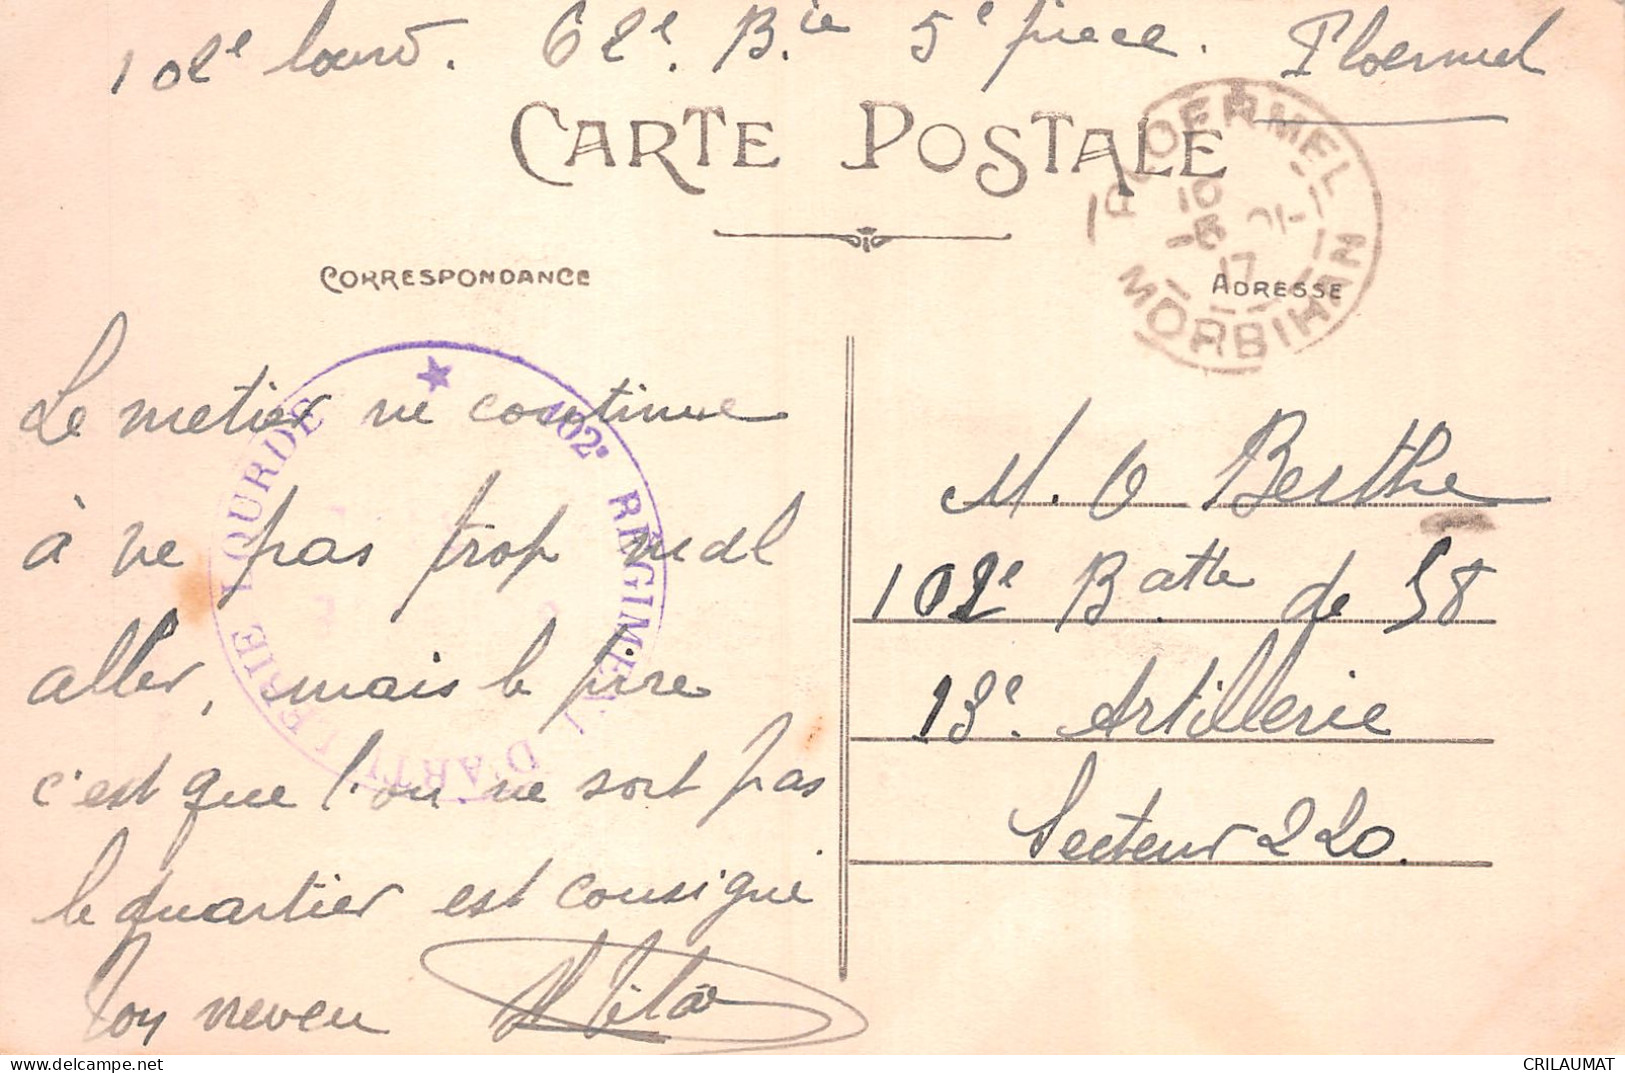 102e lourd. 62e. Bie 5e piece. Ploermel
CARTE POSTALE
PLOERMEL
10
5
17
MORBIHAN
CORRESPONDANCE
ADRESSE
★ 102e RÉGIMENT D'ARTILLERIE LOURDE
Le metier ne continue
à ne pas trop mal
aller, mais le pire
c'est que l'on ne sort pas
le quartier est consigné
Ton neveu
M. O Berthe
102e Batte de 58
13e. Artillerie
Secteur 220.
CRILAUMAT